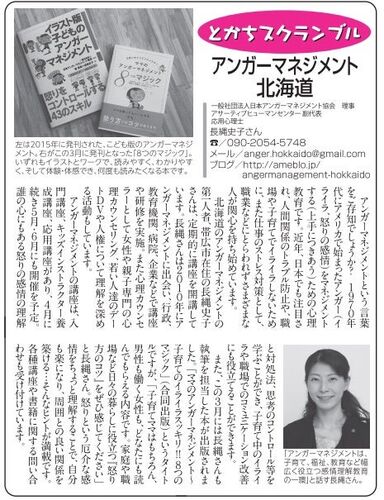 とかちスクランブル
アンガーマネジメント
北海道
一般社団法人日本アンガーマネジメント協会　理事
アサーティブヒューマンセンター副代表
応用心理士
長縄史子さん
☎/090-2054-5748
メール/anger.hokkaido@gmail.com
ブログ/http://ameblo.jp/
angermanagement-hokkaido
イラスト版
子どもの
アンガー
マネジメント
怒りを
コントロールする
43のスキル
アンガーマネジメント
8つの
マジック
左は2015年に発刊された、こども版のアンガーマネジ
メント。右がこの3月に発刊となった「8つのマジック」。
いずれもイラストとワークで、読みやすく、わかりやす
く、そして体験・体感でき、何度も読みたくなる本です。
アンガーマネジメントという言葉
をご存知でしょうか？　1970年
代にアメリカで始まったアンガー（イ
ライラ、怒りの感情）をマネジメント
する（上手につきあう）ための心理
教育です。近年、日本でも注目さ
れ、人間関係のトラブル防止や、職
場や子育てでイライラしないため
に、また仕事のストレス対策として、
職業などにとらわれずさまざまな
人が関心を持ち始めています。
北海道のアンガーマネジメントの
第一人者、帯広市在住の長縄史子
さんは、定期的に講座を開講して
います。長縄さんは2010年にア
ンガーマネジメントに出会い、行政、
教育機関、病院、企業などで講座
や研修を実施。また心理カウンセ
ラーとして女性や親子専門の心
理カウンセリング、若い人達のデー
トDVや人権について理解を深め
る活動もしています。
アンガーマネジメントの講座は、入
門講座、キッズインストラクター養
成講座、応用講座があり、4月に
続き5月・6月にも開催を予定。
誰の心にもある怒りの感情の理解
と対処法、思考のコントロール等を
学ぶことができ、子育て中のイライ
ラや職場でのコミュニケーション改善
にも役立てることができます。
また、この3月には長縄さんも
執筆を担当した本が出版されま
した。「ママのアンガーマネジメント
子育てのイライラスッキリ！8つの
マジック」（合同出版）というタイト
ルですが、「子育てママはもちろん、
男性も働く女性も、どなたにも読
んでもらえる内容です。家庭や職
場など日々の暮らしに役立つ“怒り
方のコツ”をぜひ感じてください」
と長縄さん。怒りという厄介な感
情をちょっと理解することで、自分
も楽になり、周囲との良い関係を
築ける…そんなヒントが満載です。
各種講座や書籍に関する問い合
わせも受け付けています。
「アンガーマネジメントは、
子育て、福祉、教育など幅
広く役立つ感情理解教育
の一環」と話す長縄さん。